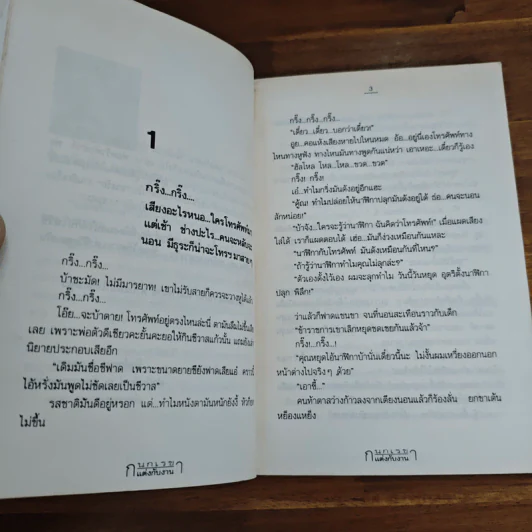 1
กริ๊ง...กริ๊ง....
เสียงอะไรหนอ...ใครโทรศัพท์
แต่เช้า ช่างปะไร...คนจะหลับ
นอน มีธุระก็น่าจะโทรฯ มาสาย
กริ๊ง...กริ๊ง...
บ้าชะมัด! ไม่มีมารยาท! เขาไม่รับสายก็ควรจะวางหูได้แล้ว
กริ๊ง...กริ๊ง...
โอ๊ย...จะบ้าตาย! โทรศัพท์อยู่ตรงไหนล่ะนี่ ตามันลืมไม่ขึ้น
เลย เพราะพ่อตัวดีเชียวคะยั้นคะยอให้กินชีวาสแก้วนั้น แถม
นิยายประกอบเสียอีก
"เดิมมันชื่อชีฟาด เพราะขนาดยายชียังฟาดเสียแอ้
ไอ้หรั่งมันพูดไม่ชัดเลยเป็นชีวาส"
รสชาติมันดีอยู่หรอก แต่...ทำไมหนังตามันหนักยังงี้
ไม่ขึ้น
กนกเรขา
แต่งกับงาน
3
กริ๊ง...กริ๊ง...กริ๊ง...
"เดี๋ยว...เดี๋ยว...บอกว่าเดี๋ยว!"
อูย...คอแห้งเสียงหายไปไหนหมด อ้อ...อยู่นี่เองโทรศัพท์ทาง
ไหนทางหูฟัง ทางไหนมันทางพูดกันแน่หว่า เอาเหอะ...เดี๋ยวก็รู้เอง
"ฮัลโหล โหล...โหล...ขวด...ขวด"
กริ๊ง! กริ๊ง!
เอ๋! ทำไมกริ่งมันดังอยู่อีกแฮะ
"คู้ณ! ทำไมปล่อยให้นาฬิกาปลุกมันดังอยู่ได้ ฮ่อ...คนจะนอน
สักหน่อย!"
"บ๊าจัง!...ใครจะรู้ว่านาฬิกา ฉันคิดว่าโทรศัพท์!" เมื่อแผดเสียง
ใส่ได้ เราก็แผดตอบได้ เฮ่อ...มันก็ง่วงเหมือนกันแหละ
"นาฬิกากับโทรศัพท์ มันดังเหมือนกันที่ไหนๆ"
"ถ้ารู้ว่านาฬิกาทำไมคุณไม่ลุกล่ะๆ"
"ตัวเองตั้งไว้เอง ผมจะลุกทำไม วันนี้วันหยุด อุตริตั้งนาฬิกา
ปลุก พิลึก!"
ว่าแล้วก็ฟาดแขนขา จนที่นอนสะเทือนราวกับเด็ก
"ข้าราชการเขาเลิกหยุดชดเชยกันแล้วจ้า"
กริ๊ง!...กริ๊ง...!
"คุณหยุดไอ้นาฬิกาบ้านั่นเดี๋ยวนี้นะ ไม่งั้นผมเหวี่ยงออกนอก
หน้าต่างไปจริงๆ ด้วย"
"เอาซี้..."
คนท้าตาสว่างก้าวลงจากเตียงนอนแล้วก็ร้องลั่น ยกขาเต้น
หย็องแหย็ง
กนกเรขา
แต่งกับงาน